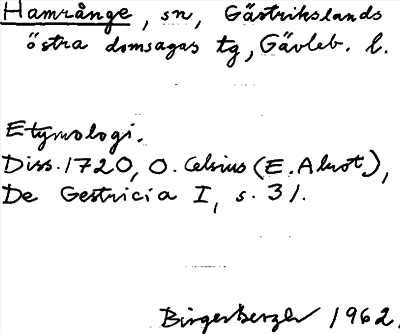 Hamrånge, sn, Gästrikslands
östra domsagas tg, Gävleb. l.
Etymologi.
Diss. 1720, O. Celsius (E. Alrot.),
De Gestricia I, s. 31.
Birger Bergh 1962.